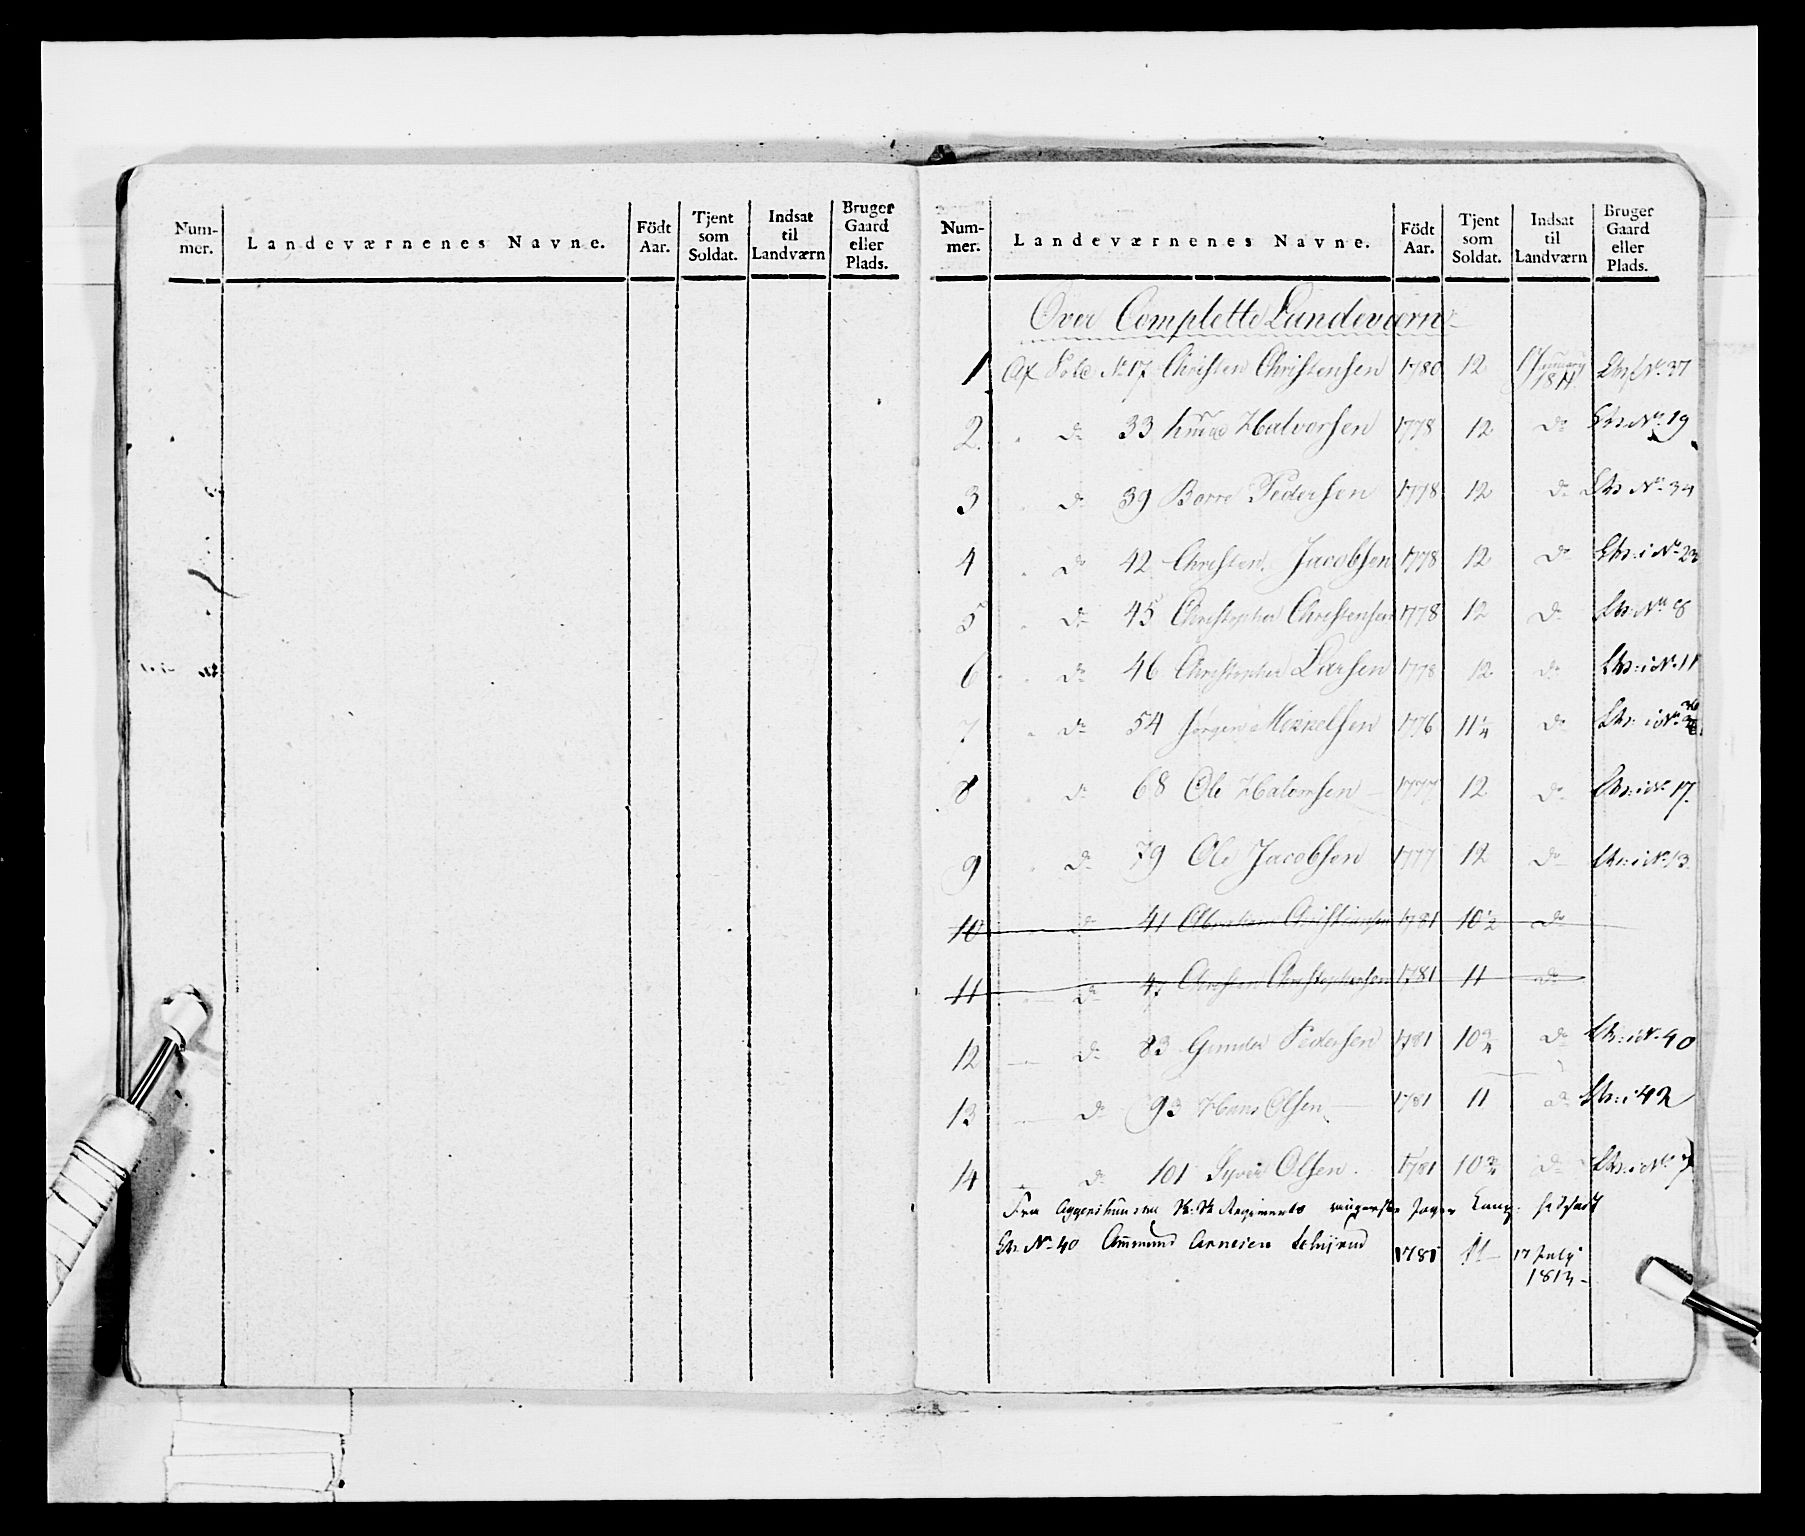 Num-
mer.
Landeværnenes Navne.
Födt
Aar.
Tjent
som
Soldat.
Indsat
til
Landværn
Bruger
Gaard
eller
Plads.
Num-
mer.
Landeværnenes Navne.
Födt
Aar.
Tjent
som
Soldat.
Indsat
til
Landværn
Bruger
Gaard
eller
Plads.
Over Complette Landeværn
1 Af Sold No 17 Christen Christensen 1780 12 1 January 1811 No. 37
2. do 33 Knud Halvorsen 1778 12 do No. 19
3 do 39 Borre Pedersen 1778 12 do No. 34
4 do 42 Christen Jacobsen 1778 12 do No. 23
5 do 45 Christopher Christensen 1778 12 do No. 8
6 do 46 Christopher Larsen 1778 12 do No. 11
7 do 54 Jörgen Mikkelsen 1776 11 1/4 do
8 do 68 Ole Halvorsen 1777 12 do No. 17.
9 do 79 Ole Jacobsen 1777 12 do No. 13
10 do 41 Abraham Christiansen 1781 10 1/2 do
11 do 47 Christen Christophersen 1781 11 do
12 do 83 Gunder Pedersen 1781 10 3/4 do No. 40
13 do 93 Hans Olsen 1781 11 do 42
14 do 101 Syver Olsen. 1781 10 3/4 do No. 7
Fra Aggershuuske Regiments Jæger Comp.
No. 40 Ammund Arnesen 1781 11 17 July
1813